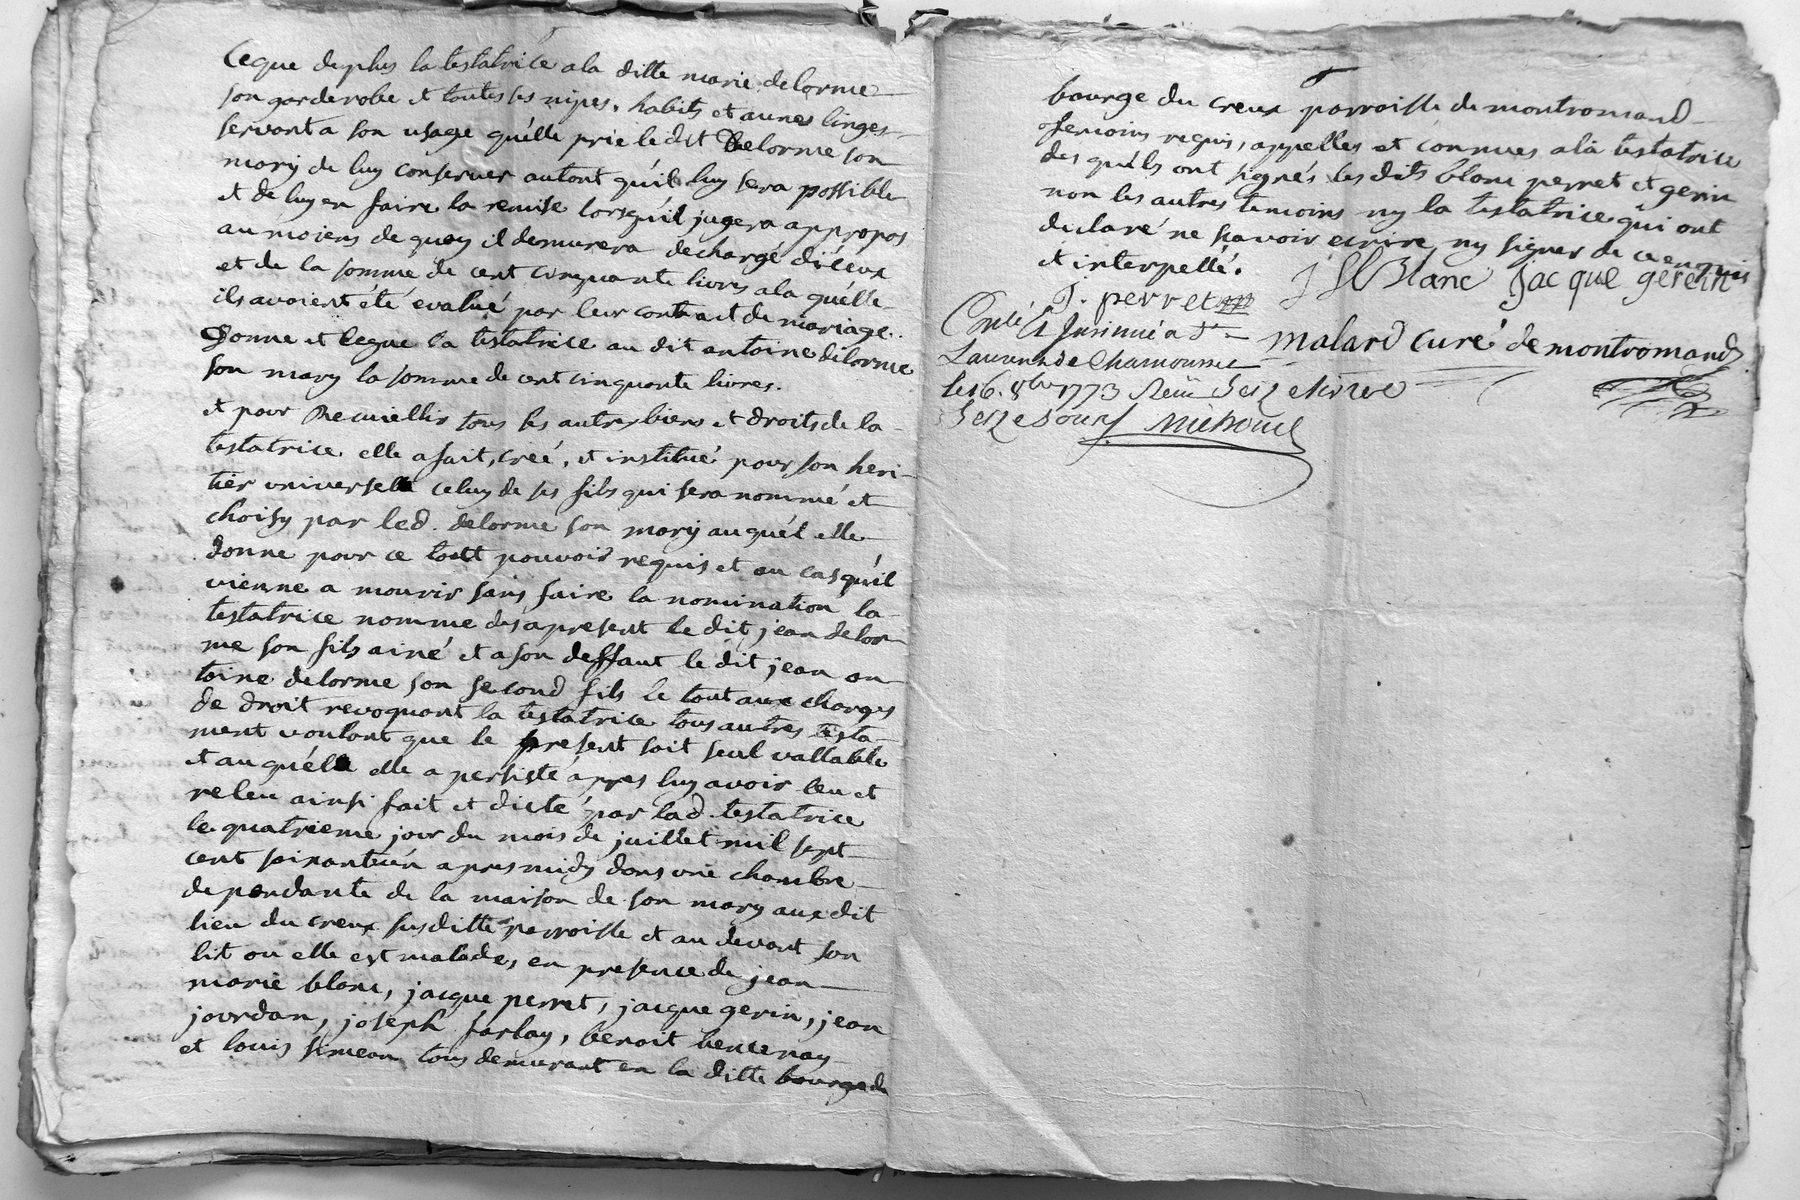 Ceque de plus la testatrice a la ditte marie delorme
son garderobe et toutes ses nipes, habits et autres linges
servant a son usage qu'elle prie ledit Delorme son
mary de luy conserver autant qu'il luy sera possible
et de luy en faire la remise lorsqu'il jugera appropos
au moiens de quoy il demurera dechargé d'iceux
et de la somme de cent cinquante livres a la quélle
ils avoient été évalué par leur contract de mariage.
Donne et legue la testatrice au dit antoine delorme
son mary la somme de cent cinquante livres.
et pour Recuiellir tous les autres biens et droits de la
testatrice elle a fait, creé, et institué pour son heri-
tier universelle celuy de ses fils qui sera nommé et
choisy par led. delorme son mary auquél elle
donne pour ce toutt pouvoir requis et au cas qu'il
vienne a mourir sans faire la nomination la
testatrice nomme des apresent le dit jean delor-
me son fils ainé et a son deffaut le dit jean an-
toine delorme son second fils le tout aux charges
de droit revoquant la testatrice tous autres testa-
ment voulant que le present soit seul vallable
et auquéle elle a persisté áppres luy avoir leu et
releu ainsi fait et dicté par lad. testatrice
le quatrieme jour du mois de juillet mil sept
cent soixante un apres midy dans une chambre
dependante de la maison de son mary aux dit
lieu du creux susditte parroisse et au devant son
lit ou elle est malade, en presence de jean
marie blanc, jacque perret, jacque gerin, jean
jourdan, joseph farlay, benoit
et louis simeon tous demurant en la ditte bourge du
bourge du creux parroisse de montromand
temoins requis, appelles et connues a la testatrice
des quéls ont signés les dits blanc perret et gerin
non les autres temoins ny la testatrice qui ont
declaré ne sçavoir ecrire ny signer de ce enquis
et interpellé.
J M Blanc Jacque gerein
J. perret
Conlé & Insinué a St
malard curé de montromand
Laurent de Chamousset
le 16. 8bre 1773 Reçu